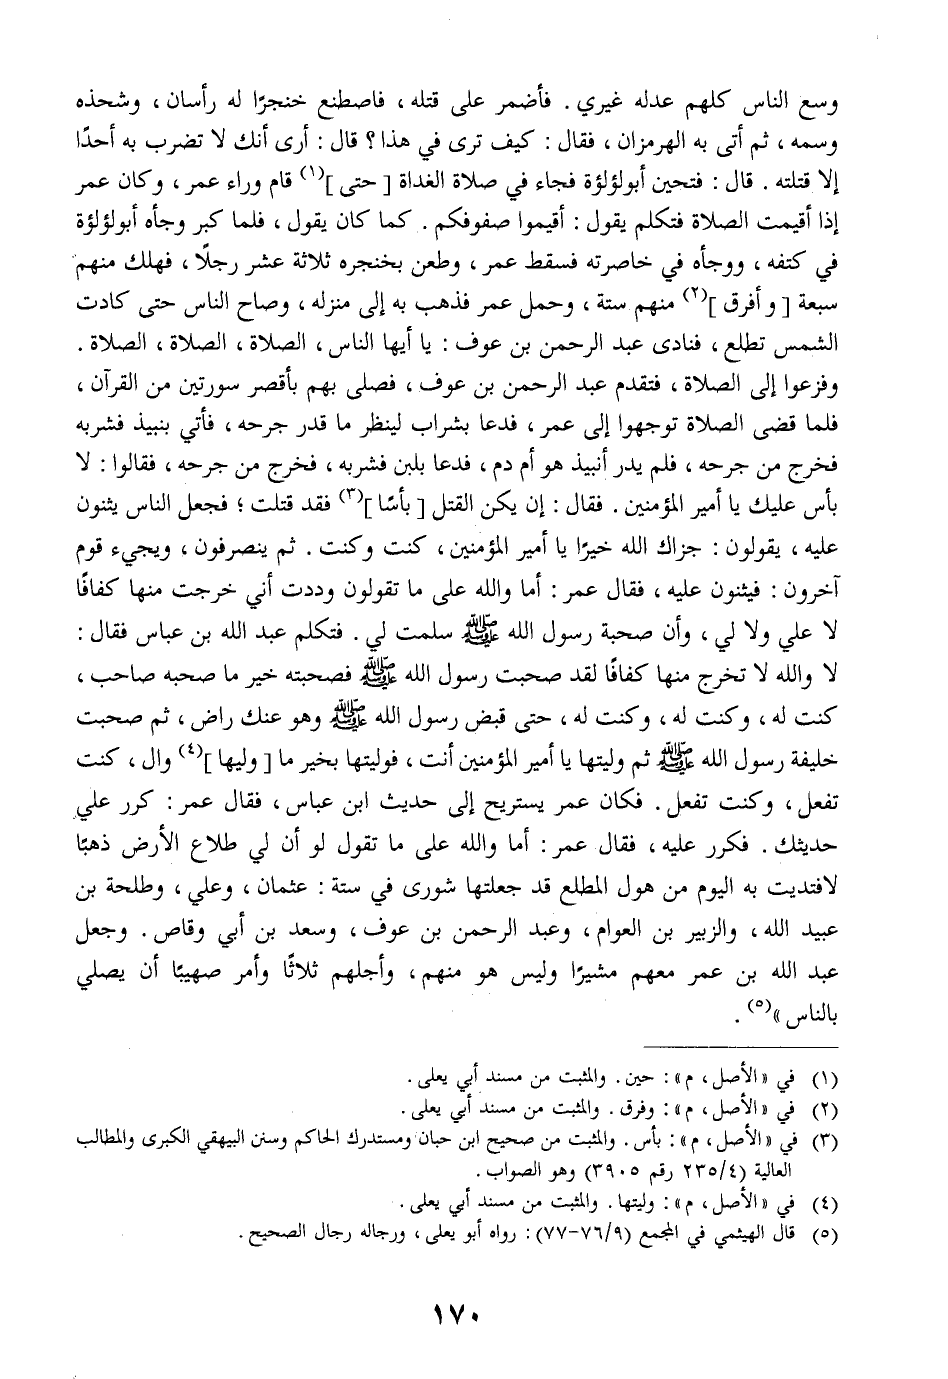 وسع الناس كلهم عدله غيري . فأضمر على قتله ، فاصطنع خنجرًا له رأسان ، وشحذه
وسمه ، ثم أتى به الهرمزان ، فقال : كيف ترى في هذا ؟ قال : أرى أنك لا تضرب به أحدًا
إلا قتلته . قال : فتحين أبولؤلؤة فجاء في صلاة الغداة [ حتى ](١) قام وراء عمر ، وكان عمر
إذا أقيمت الصلاة فتكلم يقول : أقيموا صفوفكم . كما كان يقول ، فلما كبر وجأه أبولؤلؤة
في كتفه ، ووجأه في خاصرته فسقط عمر ، وطعن بخنجره ثلاثة عشر رجلًا ، فهلك منهم
سبعة [ و أفرق ](٢) منهم ستة ، وحمل عمر فذهب به إلى منزله ، وصاح الناس حتى كادت
الشمس تطلع ، فنادى عبد الرحمن بن عوف : يا أيها الناس ، الصلاة ، الصلاة ، الصلاة .
وفزعوا إلى الصلاة ، فتقدم عبد الرحمن بن عوف ، فصلى بهم بأقصر سورتين من القرآن ،
فلما قضى الصلاة توجهوا إلى عمر ، فدعا بشراب لينظر ما قدر جرحه ، فأتي بنبيذ فشربه
فخرج من جرحه ، فلم يدر أنبيذ هو أم دم ، فدعا بلبن فشربه ، فخرج من جرحه ، فقالوا : لا
بأس عليك يا أمير المؤمنين . فقال : إن يكن القتل [ بأسًا ](٣) فقد قتلت ؛ فجعل الناس يثنون
عليه ، يقولون : جزاك الله خيرًا يا أمير المؤمنين ، كنت وكنت . ثم ينصرفون ، ويجيء قوم
آخرون : فيثنون عليه ، فقال عمر : أما والله على ما تقولون وددت أني خرجت منها كفافًا
لا علي ولا لي ، وأن صحبة رسول الله ﷺ سلمت لي . فتكلم عبد الله بن عباس فقال :
لا والله لا تخرج منها كفافًا لقد صحبت رسول الله ﷺ فصحبته خير ما صحبه صاحب ،
كنت له ، وكنت له ، وكنت له ، حتى قبض رسول الله ﷺ وهو عنك راض ، ثم صحبت
خليفة رسول الله ﷺ ثم وليتها يا أمير المؤمنين أنت ، فوليتها بخير ما [ وليها ](٤) وال ، كنت
تفعل ، وكنت تفعل . فكان عمر يستريح إلى حديث ابن عباس ، فقال عمر : كرر علي
حديثك . فكرر عليه ، فقال عمر : أما والله على ما تقول لو أن لي طلاع الأرض ذهبًا
لافتديت به اليوم من هول المطلع قد جعلتها شورى في ستة : عثمان ، وعلي ، وطلحة بن
عبيد الله ، والزبير بن العوام ، وعبد الرحمن بن عوف ، وسعد بن أبي وقاص . وجعل
عبد الله بن عمر معهم مشيرًا وليس هو منهم ، وأجلهم ثلاثًا وأمر صهيبًا أن يصلي
بالناس »(٥) .
(١) في «الأصل ، م» : حين . والمثبت من مسند أبي يعلى .
(٢) في «الأصل ، م» : وفرق . والمثبت من مسند أبي يعلى .
(٣) في «الأصل ، م» : بأس . والمثبت من صحيح ابن حبان ومستدرك الحاكم وسنن البيهقي الكبرى والمطالب
العالية (٢٣٥/٤ رقم ٣٩٠٥) وهو الصواب .
(٤) في «الأصل ، م» : وليتها . والمثبت من مسند أبي يعلى .
(٥) قال الهيثمي في المجمع (٧٦/٩-٧٧) : رواه أبو يعلى ، ورجاله رجال الصحيح .
١٧٠